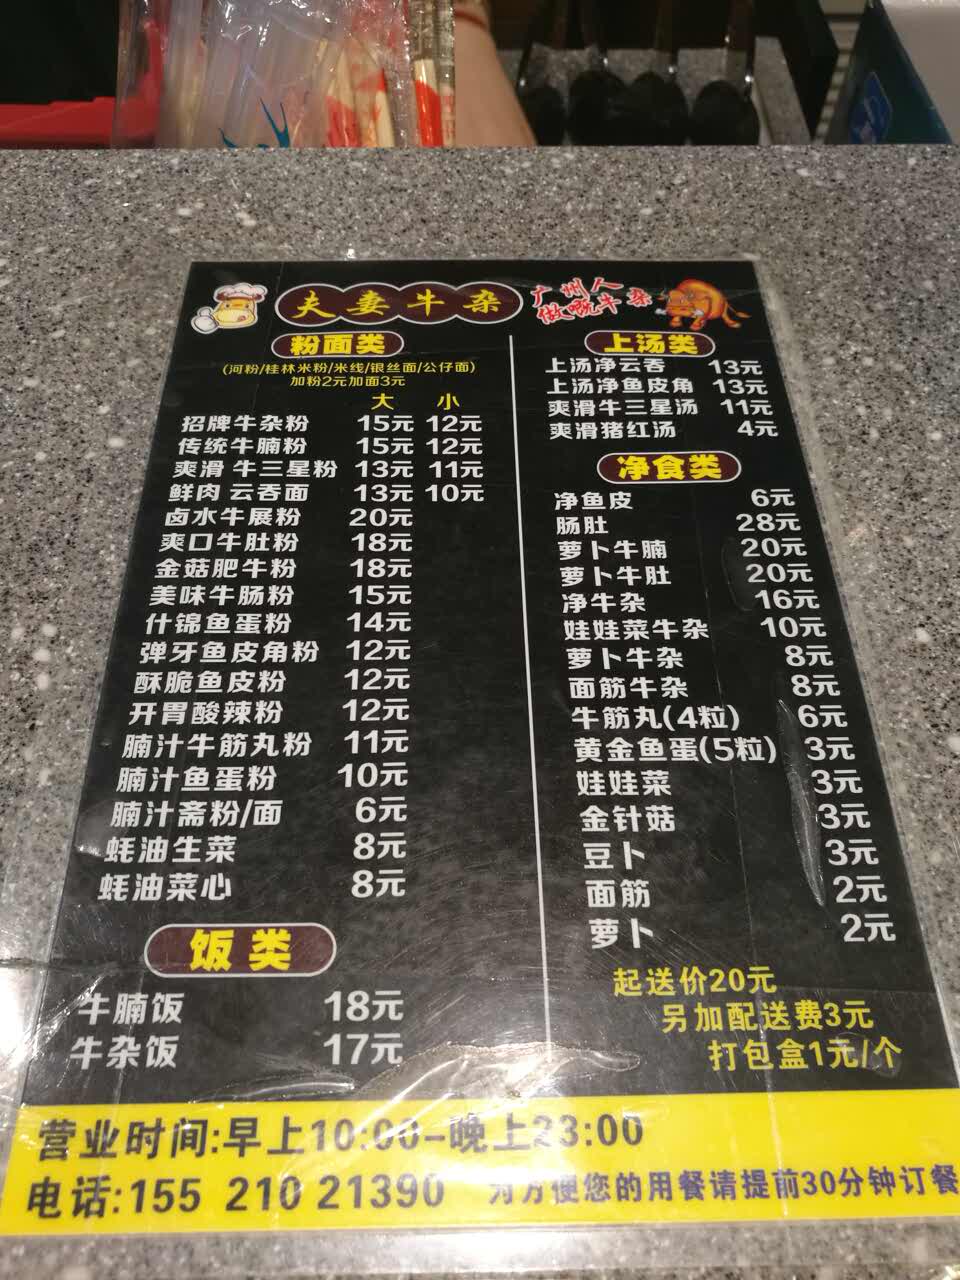 夫妻牛杂
广州人
做嘅牛杂
粉面类
(河粉/桂林米粉/米线/银丝面/公仔面)
加粉2元加面3元
大 小
招牌牛杂粉 15元 12元
传统牛腩粉 15元 12元
爽滑 牛三星粉 13元 11元
鲜肉 云吞面 13元 10元
卤水牛展粉 20元
爽口牛肚粉 18元
金菇肥牛粉 18元
美味牛肠粉 15元
什锦鱼蛋粉 14元
弹牙鱼皮角粉 12元
酥脆鱼皮粉 12元
开胃酸辣粉 12元
腩汁牛筋丸粉 11元
腩汁鱼蛋粉 10元
腩汁斋粉/面 6元
蚝油生菜 8元
蚝油菜心 8元
饭类
牛腩饭 18元
牛杂饭 17元
上汤类
上汤净云吞 13元
上汤净鱼皮角 13元
爽滑牛三星汤 11元
爽滑猪红汤 4元
净食类
净鱼皮 6元
肠肚 28元
萝卜牛腩 20元
萝卜牛肚 20元
净牛杂 16元
娃娃菜牛杂 10元
萝卜牛杂 8元
面筋牛杂 8元
牛筋丸(4粒) 6元
黄金鱼蛋(5粒) 3元
娃娃菜 3元
金针菇 3元
豆卜 3元
面筋 2元
萝卜 2元
起送价20元
另加配送费3元
打包盒1元/个
营业时间:早上10:00-晚上23:00
电话:155 210 21390 为方便您的用餐请提前30分钟订餐